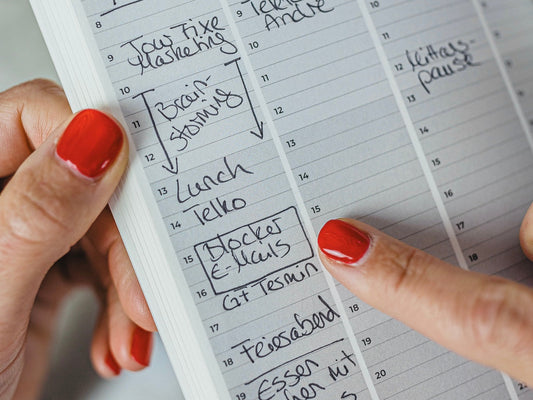 8
9 Jour Fixe
Marketing
10
Brain-
11 storming
12
13 Lunch
14 Telko
15 Blocker
E-Mails
16 G+ Termin
17
18 Feierabend
19 Essen
mit
9
André
10
11
12
13
14
15
18
19
20
10
11
12 Mittags-
pause
13
14
15
16
17
18
20